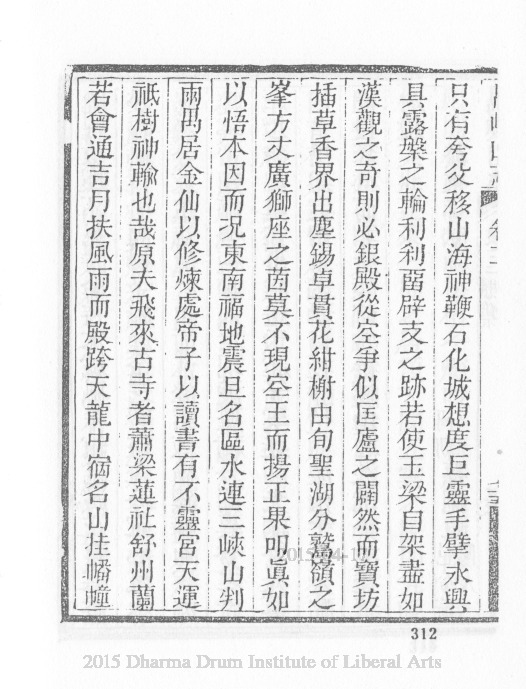 只有夸父移山海神鞭石化城想度巨靈手擘永興
具露槃之輪利利畱辟支之跡若使玉梁自架盡如
漢觀之奇則必銀殿從空爭似匡廬之闢然而寶坊
插草香界出塵錫卓貫花紺榭由旬聖湖分鷲嶺之
峯方丈廣獅座之茵莫不現空王而揚正果叩眞如
以悟本因而况東南福地震旦名區水連三峽山判
兩禺居金仙以修煉處帝子以讀書有不靈宮天運
祗樹神輸也哉原夫飛來古寺者蕭梁蓮社舒州蘭
若會通吉月扶風雨而殿跨天龍中宿名山挂幡幢
312
2015 Dharma Drum Institute of Liberal Arts